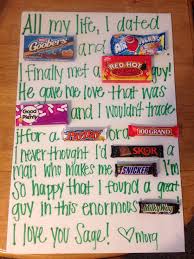 All my life, I dated
Goobers and AIRHEADS
Finally met a RED-HOT guy!
He gave me love that was
Good & Plenty and I wouldn't trade
it for a PAYDAY or 100 GRAND
I never thought I'd SKOR
a man who makes me SNICKER I'm
so happy that I found a great
guy in this enormous MilkyWay
I love you Sage! ♡ Marg